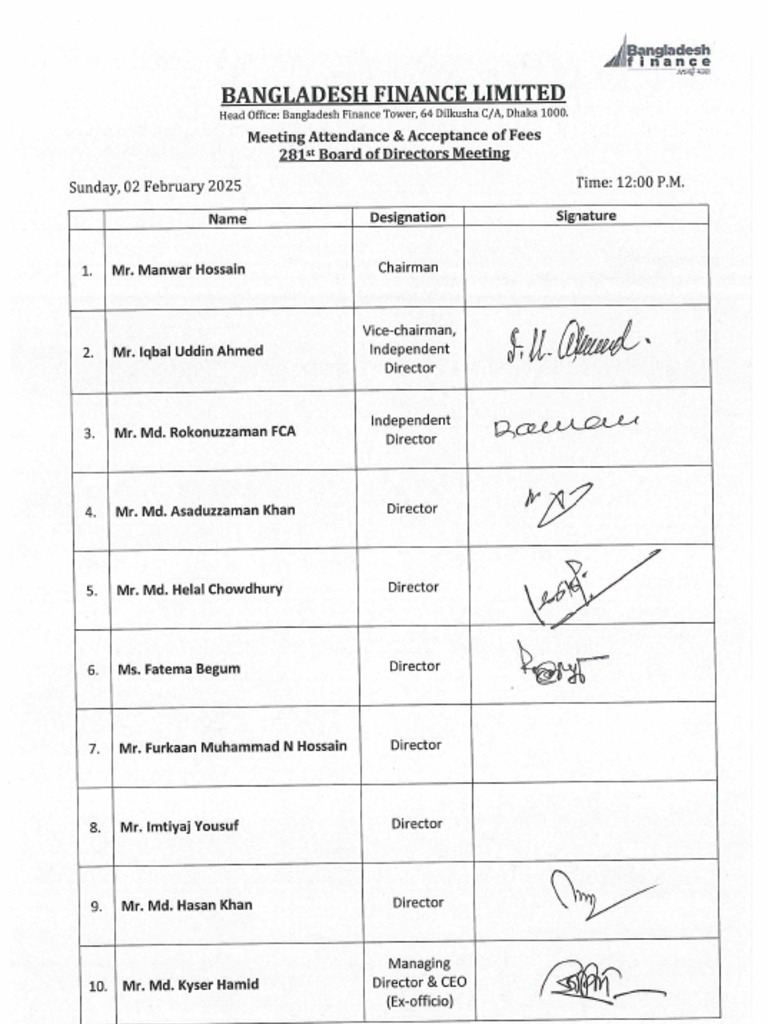 Bangladesh
finance
BANGLADESH FINANCE LIMITED
Head Office: Bangladesh Finance Tower, 64 Dilkusha C/A, Dhaka 1000.
Meeting Attendance & Acceptance of Fees
281st Board of Directors Meeting
Sunday, 02 February 2025 Time: 12:00 P.M.
Name Designation Signature
1. Mr. Manwar Hossain Chairman
2. Mr. Iqbal Uddin Ahmed Vice-chairman,
Independent
Director
I. U. Ahmed.
3. Mr. Md. Rokonuzzaman FCA Independent
Director
4. Mr. Md. Asaduzzaman Khan Director
5. Mr. Md. Helal Chowdhury Director
6. Ms. Fatema Begum Director
7. Mr. Furkaan Muhammad N Hossain Director
8. Mr. Imtiyaj Yousuf Director
9. Mr. Md. Hasan Khan Director
10. Mr. Md. Kyser Hamid Managing
Director & CEO
(Ex-officio)